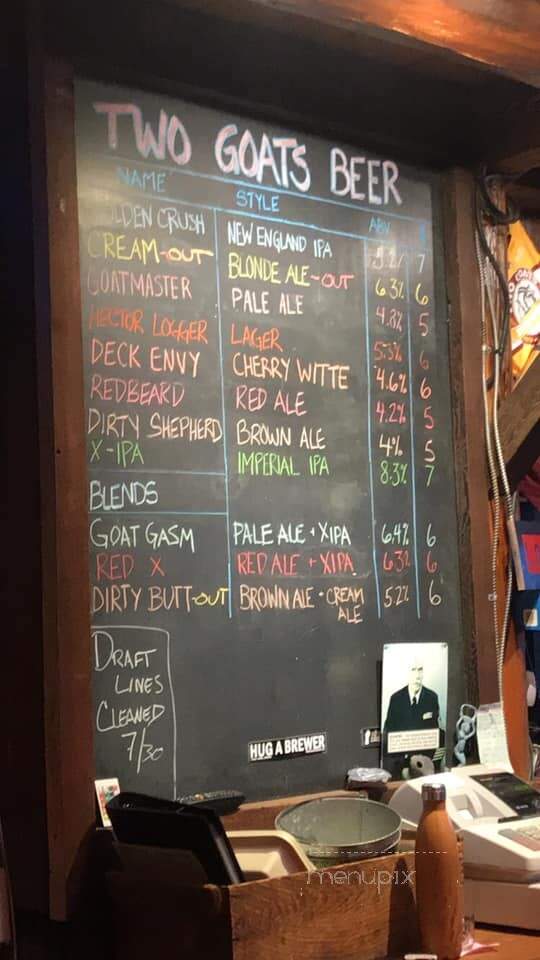 TWO GOATS BEER
NAME STYLE ABV $
GOLDEN CRUSH NEW ENGLAND IPA 7
CREAM-OUT BLONDE ALE-OUT 6.3% 6
GOATMASTER PALE ALE 4.8% 5
HECTOR LOGGER LAGER 5.3% 6
DECK ENVY CHERRY WITTE 4.6% 6
REDBEARD RED ALE 4.2% 5
DIRTY SHEPHERD BROWN ALE 4% 5
X-IPA IMPERIAL IPA 8.3% 7
BLENDS
GOAT GASM PALE ALE + XIPA 6.4% 6
RED X RED ALE + XIPA 6.3% 6
DIRTY BUTT-OUT BROWN ALE + CREAM ALE 5.2% 6
DRAFT
LINES
CLEANED
7/30
HUG A BREWER
menupix